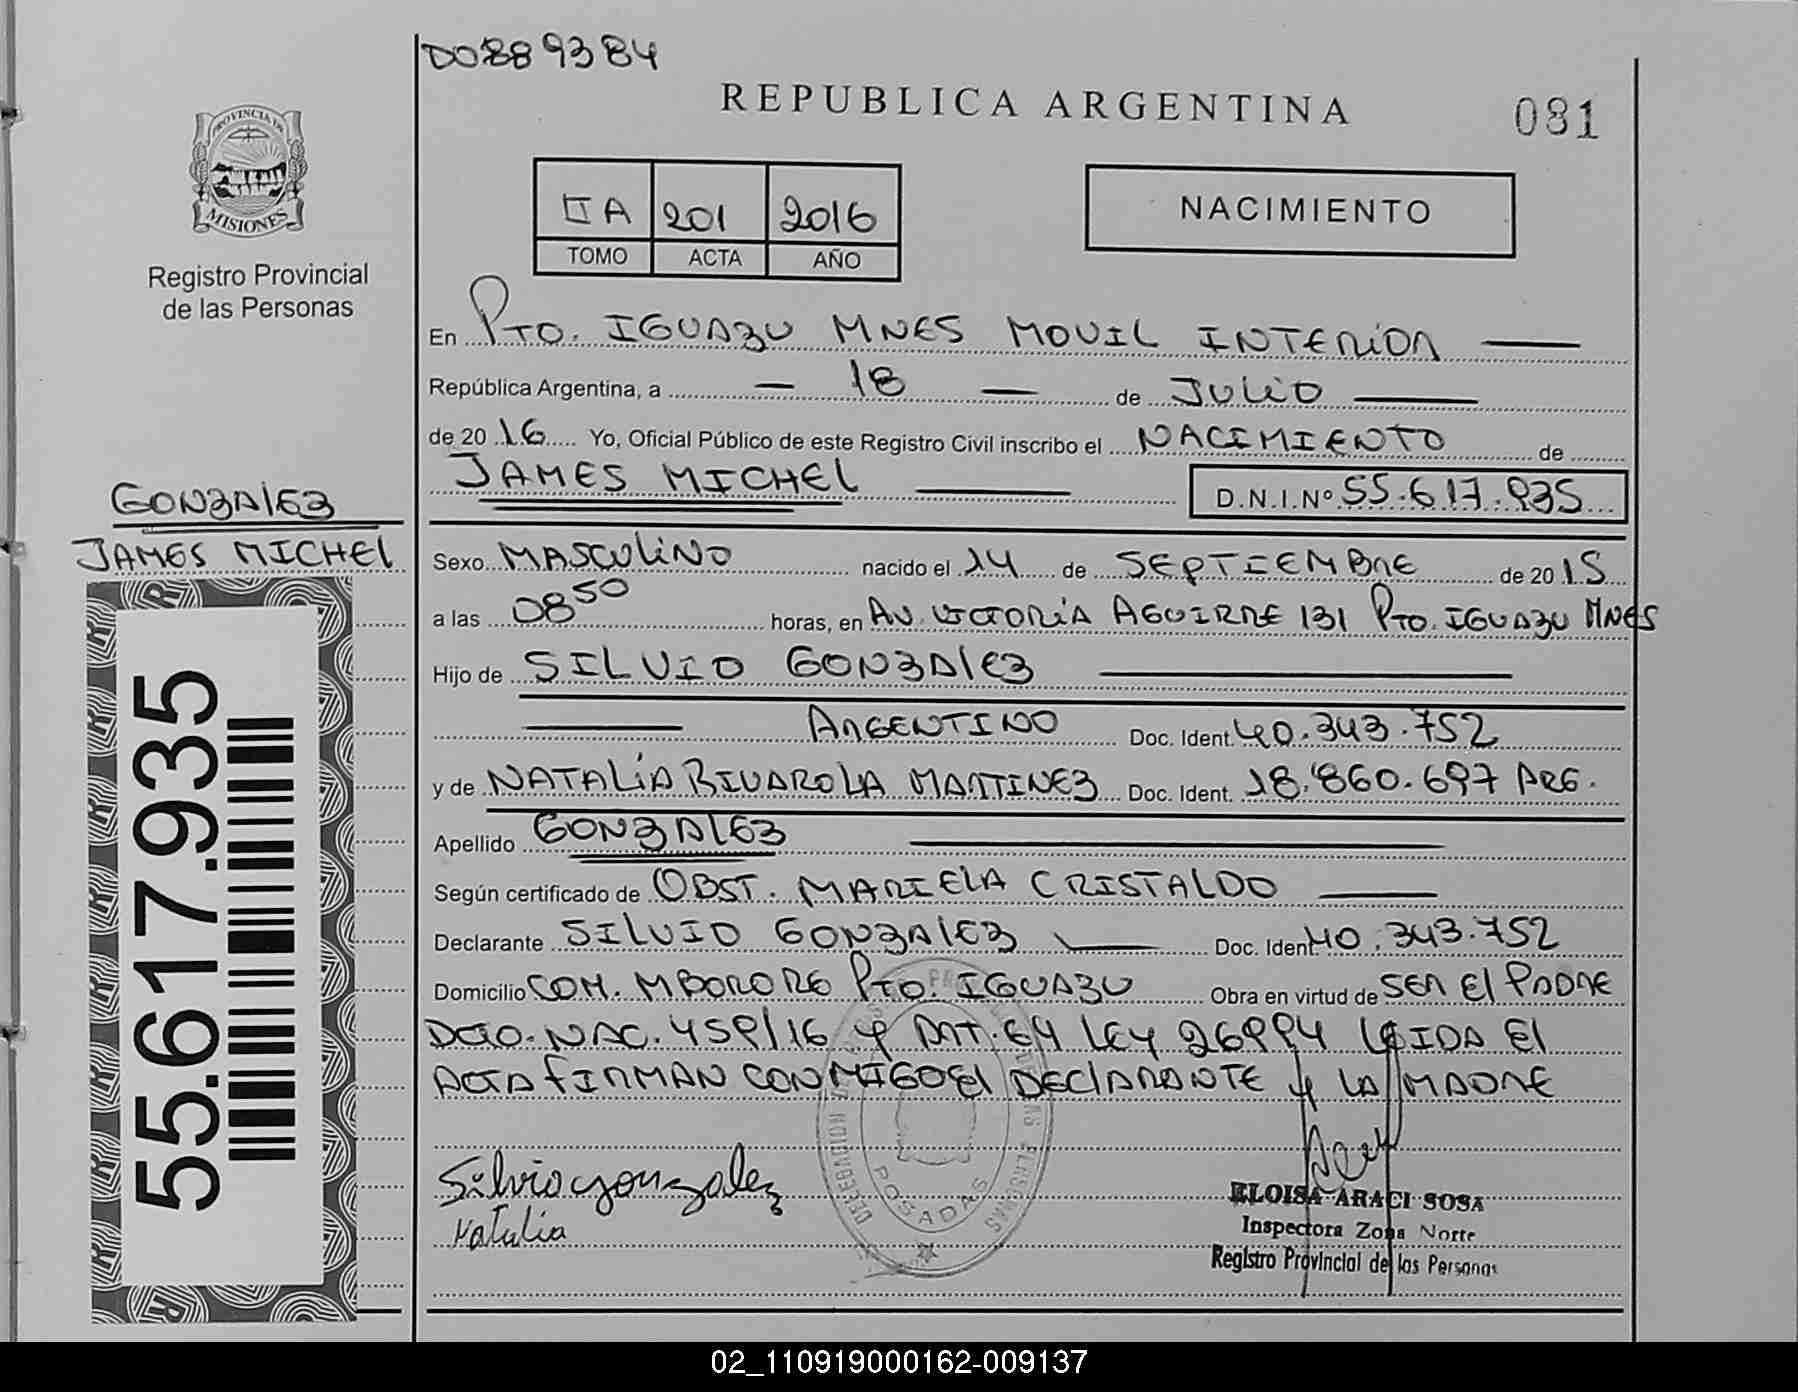 DO889384
REPUBLICA ARGENTINA
081
PROVINCIA DE
MISIONES
Registro Provincial
de las Personas
II A 201 2016
TOMO ACTA AÑO
NACIMIENTO
En PTO. IGUAZU MNES MOVIL INTERIOR
República Argentina, a 18 de JULIO
de 2016 Yo, Oficial Público de este Registro Civil inscribo el NACIMIENTO de
JAMES MICHEL D.N.I.Nº 55.617.935
GONZALEZ
JAMES MICHEL
55.617.935
Sexo MASCULINO nacido el 14 de SEPTIEMBRE de 2015
a las 08 50 horas, en AV. VICTORIA AGUIRRE 131 PTO. IGUAZU MNES
Hijo de SILVIO GONZALEZ
ARGENTINO Doc. Ident. 40.343.752
y de NATALIA RIVAROLA MARTINEZ Doc. Ident. 18.860.697 ARG.
Apellido GONZALEZ
Según certificado de OBST. MARIELA CRISTALDO
Declarante SILVIO GONZALEZ Doc. Ident. 40.343.752
Domicilio COM. MBORORE PTO. IGUAZU Obra en virtud de SER El PADRE
DCTO. NAC. 459/16 y ART. 64 LEY 26994 LEIDA El
ACTA FIRMAN CONMIGO El DECLARANTE y LA MADRE
Silvio gonzalez
Natalia
DELEGACION
POSADAS
ELOISA ARACI SOSA
Inspectora Zona Norte
Registro Provincial de las Personas
02_110919000162-009137